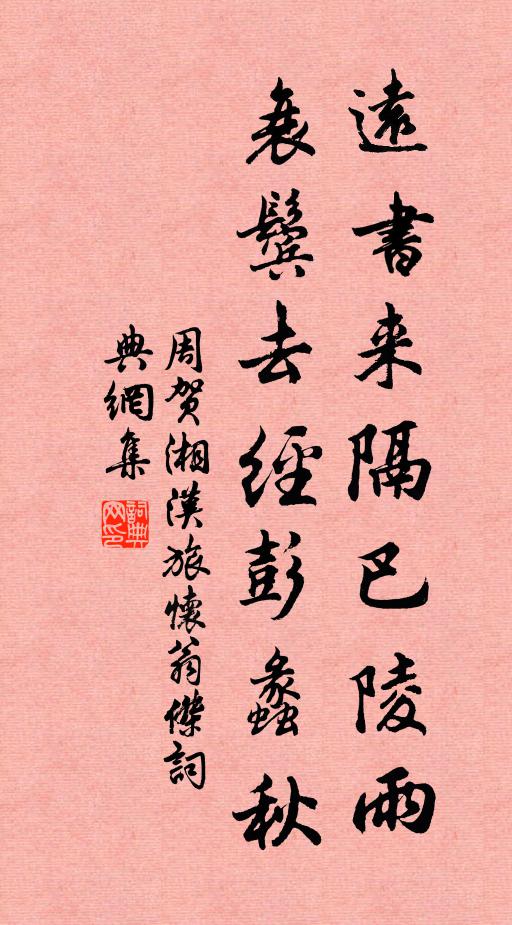 遠書来隔巴陵雨
衰鬢去經彭蠡秋
周贺湘漢旅懷翁傑詞
典網集
詞典网印